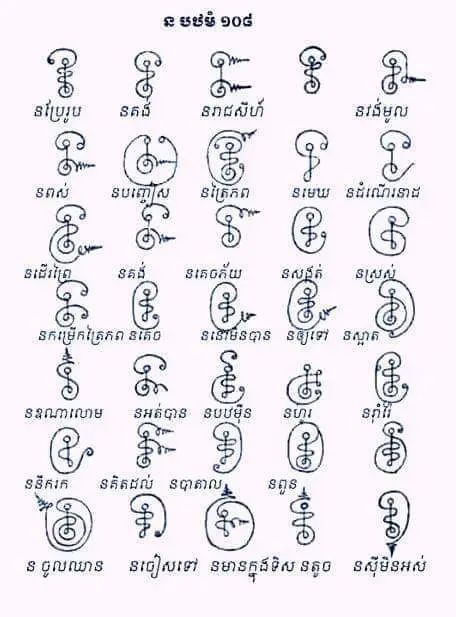 ន បឋមំ ១០៨
នប្រែរូប នគង់ នរាជសីហ៍ នវង់មូល
នពស់ នបញ្ចៀស នត្រៃភព នមេឃ នដំណើរនាដ
នដើរព្រៃ នគង់ នគេចភ័យ នសង្កត់ នស្រស់
នកម្រើកត្រៃភព នគេច ននៅមិនបាន នឲ្យទៅ នស្អាត
នឧណាលោម នអត់បាន នបបម៉ឺន នហូរ នរ៉ាំរ៉ៃ
ននឹករក នគិតដល់ នបាតាល នពួន
ន ចូលឈាន នចៀសទៅ នមានក្នុងទិស នតូច នស៊ីមិនអស់